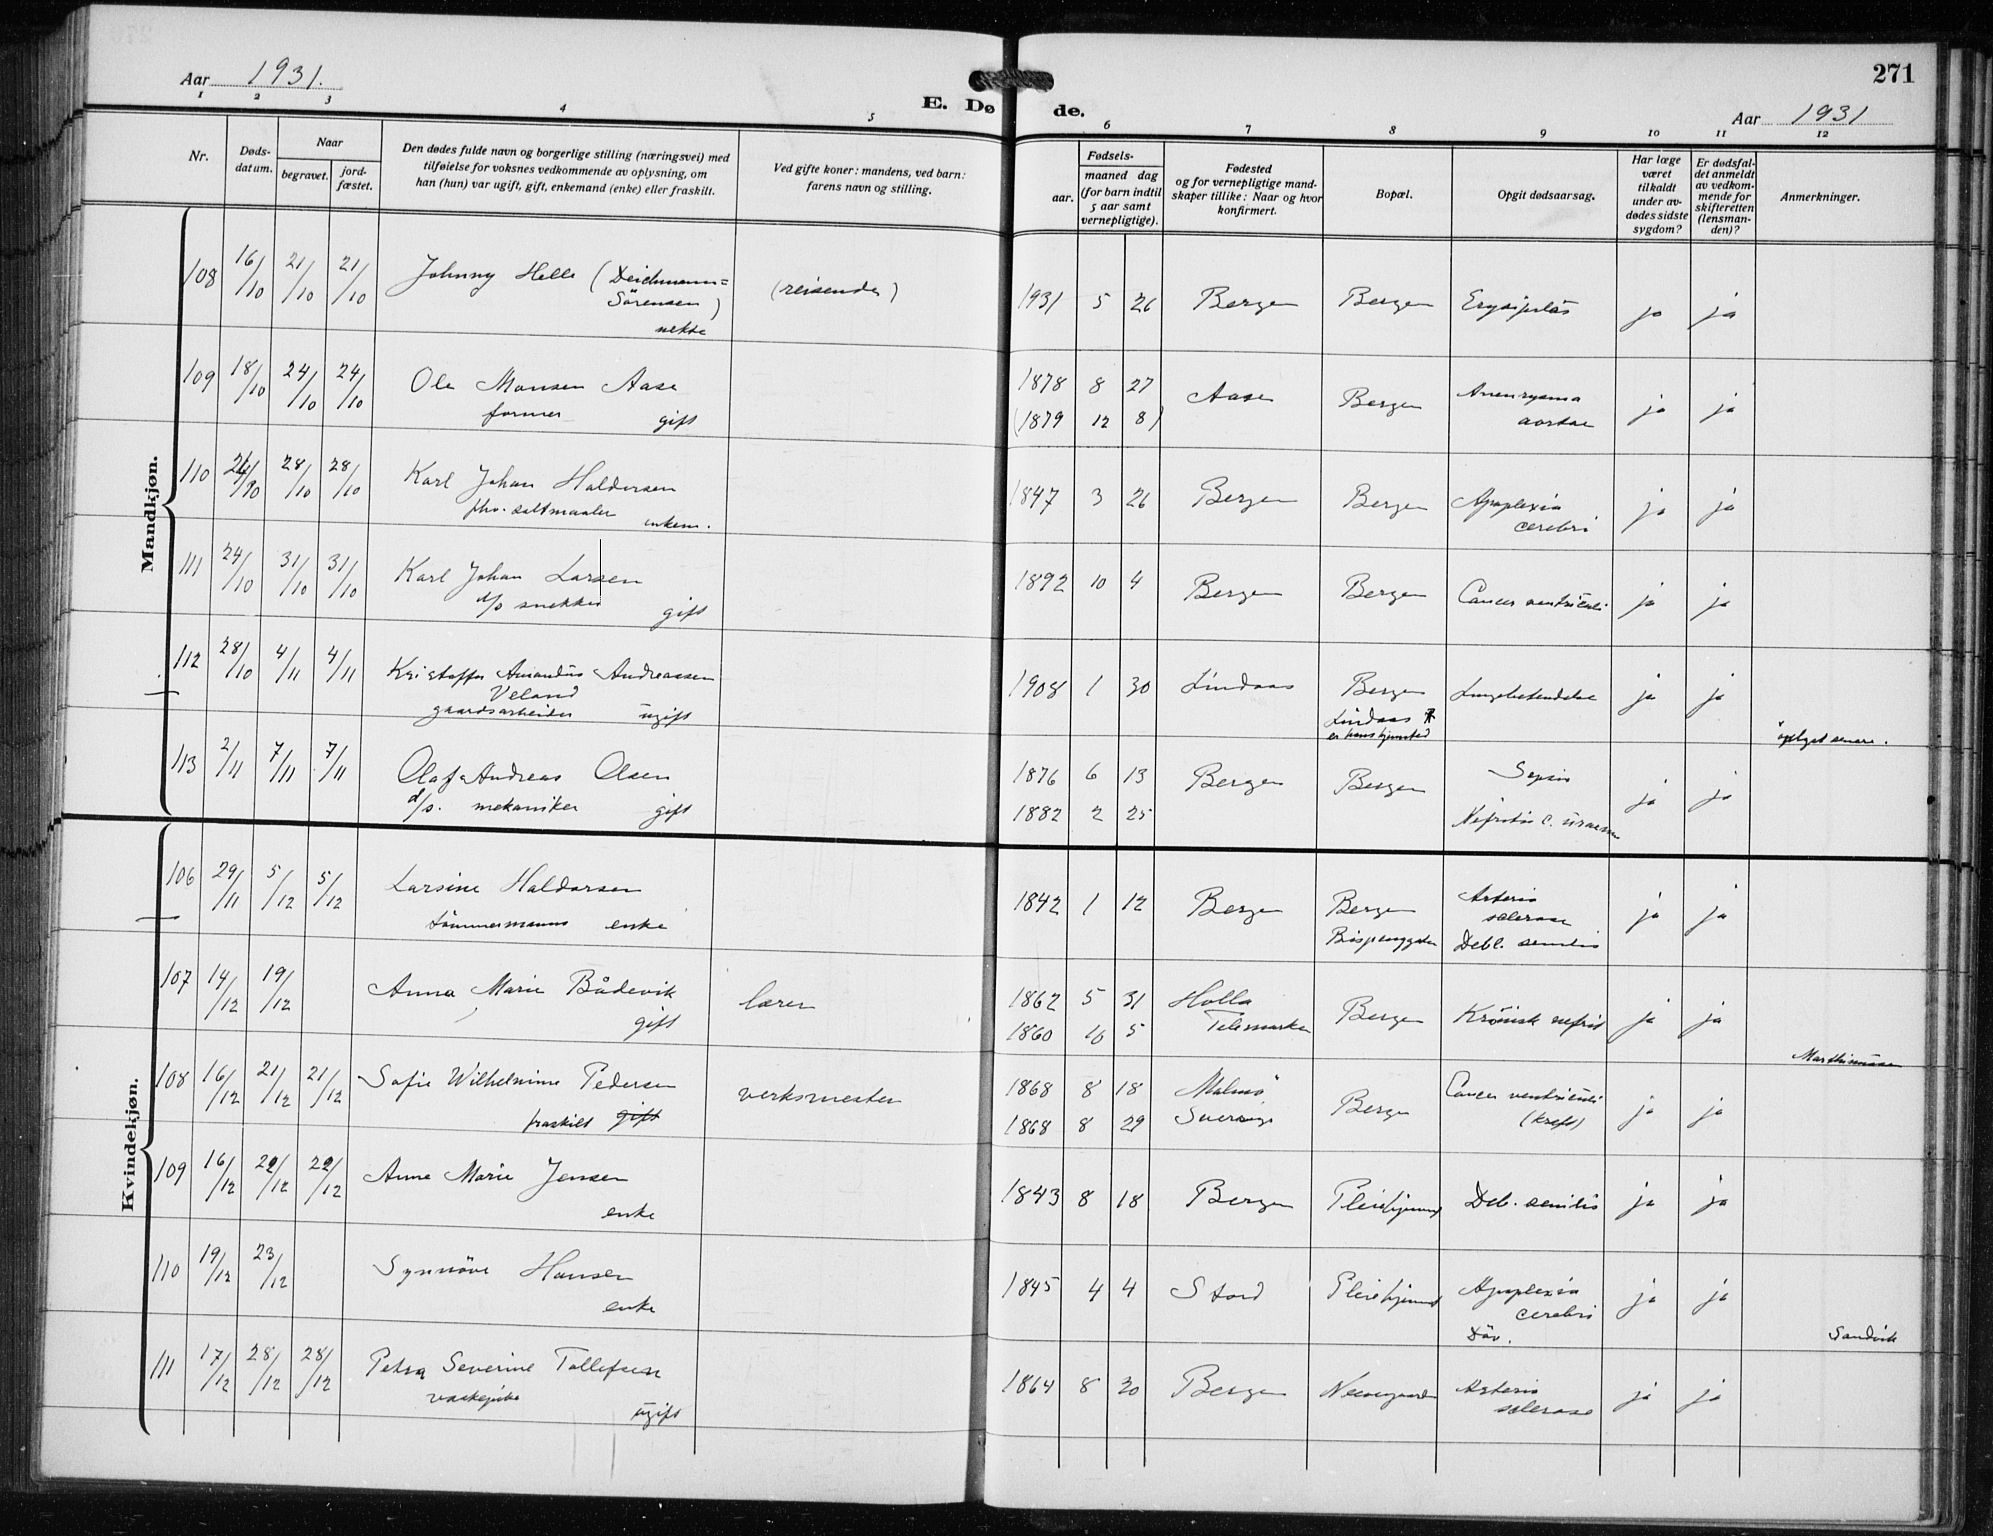 Aar 1931.
271
E. Dø de.
Aar 1931
1 2 3 4 5 6 7 8 9 10 11 12
Nr.
Døds-
datum.
Naar
begravet.
jord-
fæstet.
Den dødes fulde navn og borgerlige stilling (næringsvei) med
tilføielse for voksnes vedkommende av oplysning, om
han (hun) var ugift, gift, enkemand (enke) eller fraskilt.
Ved gifte koner: mandens, ved barn:
farens navn og stilling.
Fødsels-
aar.
maaned dag
(for barn indtil
5 aar samt
vernepligtige).
Fødested
og for vernepligtige mand-
skaper tillike: Naar og hvor
konfirmert.
Bopæl.
Opgit dødsaarsag.
Har læge
været
tilkaldt
under av-
dødes sidste
sygdom?
Er dødsfal-
det anmeldt
av vedkom-
mende for
skifteretten
(lensman-
den)?
Anmerkninger.
Mandkjøn.
108 16/10 21/10 21/10 Johnny Helle (Deichmann=
Sörensen)
nekte
(reisende)
1931 5 26 Bergen Bergen Erysipelas ja ja
109 18/10 24/10 24/10 Ole Monsen Aase
former gift
1878 8 27
(1879 12 8)
Aase Bergen Aneurysma
aortae
ja ja
110 /10 28/10 28/10 Karl Johan Haldorsen
fhv. saltmaaler enkem.
1847 3 26 Bergen Bergen Apoplexia
cerebri
ja ja
111 24/10 31/10 31/10 Karl Johan Larsen
d/o snekker gift
1892 10 4 Bergen Bergen Cancer ventriculi ja ja
112 28/10 4/11 4/11 Kristoffer Amandus Andreassen
Veland
gaardsarbeider ugift
1908 1 30 Lindaas Bergen
Lindaas
er hans hjemsted
Lungebetendelse ja ja
oplyst senere.
113 2/11 7/11 7/11 Olaf Andreas Olsen
d/s. mekaniker gift
1876 6 13
1882 2 25
Bergen Bergen Sepsis
Nefritis c.
ja ja
Kvindekjøn.
106 29/11 5/12 5/12 Larsine Haldorsen
tömmermanns enke
1842 1 12 Bergen Bergen
Arterio
sclerose
Debl. senilis
ja ja
107 14/12 19/12 Anna Marie Bådevik
gift
lærer
1862 5 31
1860 10 5
Holla
Telemarken
Bergen Kronisk nefrit ja ja
108 16/12 21/12 21/12 Sofie Wilhelmine Pedersen
fraskilt gift
verksmester
1868 8 18
1868 8 29
Malmö
Sverige
Bergen Cancer ventriculi
(kreft)
ja ja
109 16/12 22/12 22/12 Anne Marie Jensen
enke
1843 8 18 Bergen Pleiehjemmet Deb. senilis ja ja
110 19/12 23/12 Synnöve Hansen
enke
1845 4 4 Stord Pleiehjemmet Apoplexia
cerebri
Döv.
ja ja
Sandvik
111 17/12 28/12 28/12 Petra Severine Tollefsen
vaskepike
ugift
1864 8 30 Bergen Neevengaarden Arterio
sclerose
ja ja